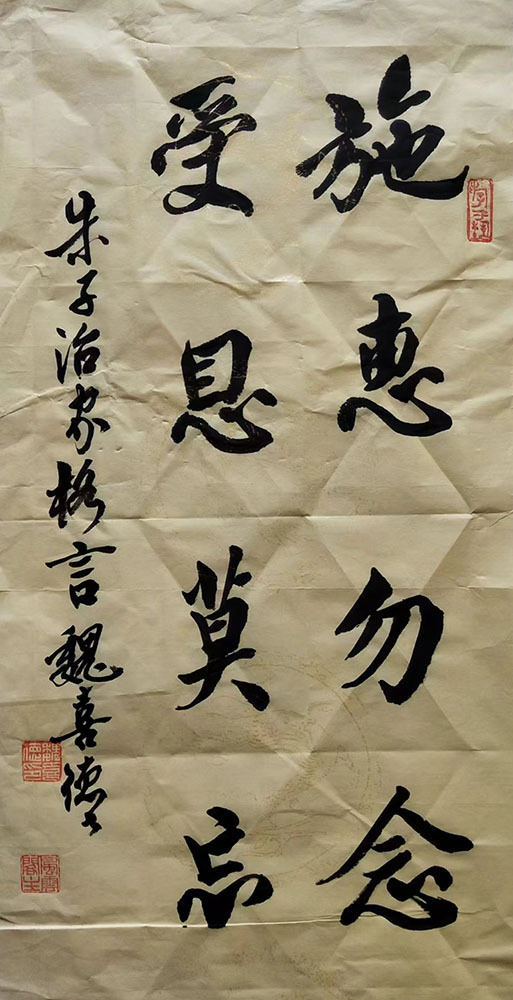 施惠勿念
受恩莫忘
朱子治家格言 魏喜德